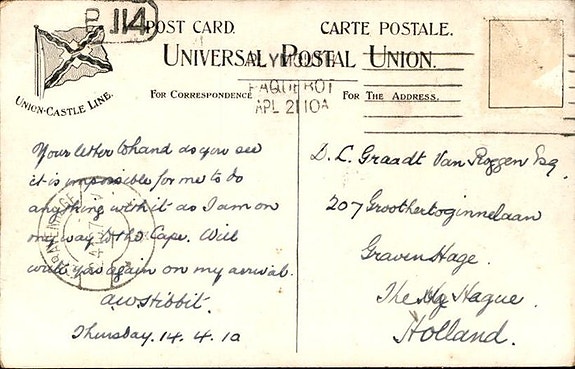 114
POST CARD.
CARTE POSTALE.
UNIVERSAL POSTAL UNION.
UNION-CASTLE LINE.
PLYMOUTH
PAQUEBOT
APL 21 10A
FOR CORRESPONDENCE
FOR THE ADDRESS.
Your letter to hand as you see
it is impossible for me to do
anything with it as I am on
my way to the Cape. Will
write you again on my arrival.
AW Stibbit.
Thursday. 14. 4. 10
D. C. Graadt Van Roggen Esq.
207 Groothertoginnelaan
Graven Hage.
The Hague.
Holland.